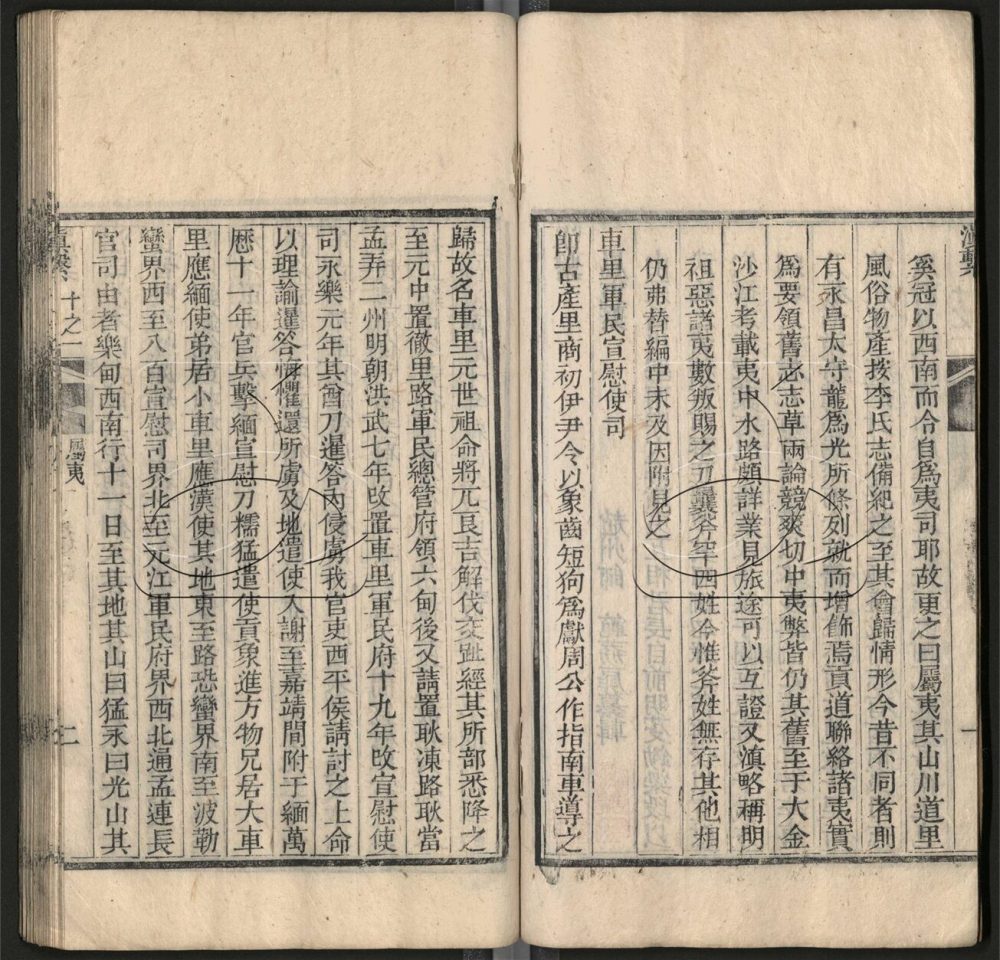 滇繫
奚冠以西南而今自爲夷司耶故更之曰屬夷其山川道里
風俗物產按李氏志備紀之至其會歸情形今昔不同者則
有永昌太守龍爲光所條列就而增飾焉貢道聯絡諸夷實
爲要領舊志草兩論競爽切中夷弊皆仍其舊至于大金
沙江考載夷中水路頗詳業見旅途可以互證又滇略稱明
祖惡諸夷數叛賜之刀斧罕四姓今惟斧姓無存其他相
仍弗替編中未及因附見之
車里軍民宣慰使司
卽古產里商初伊尹令以象齒短狗爲獻周公作指南車導之
一
歸故名車里元世祖命將兀良吉解伐交趾經其所部悉降之
至元中置徹里路軍民總管府領六甸後又請置耿凍路耿當
孟弄二州明朝洪武七年改置車里軍民府十九年改宣慰使
司永樂元年其酋刀暹答內侵虜我官吏西平侯請討之上命
以理諭暹答悔懼還所虜及地遣使入謝至嘉靖間附于緬萬
歷十一年官兵擊緬宣慰刀糯猛遣使貢象進方物兄居大車
里應緬使弟居小車里應漢使其地東至路恐蠻界南至波勒
蠻界西至八百宣慰司界北至元江軍民府界西北通孟連長
官司由者樂甸西南行十一日至其地其山曰猛永曰光山其
滇繫 十之一 屬夷 二